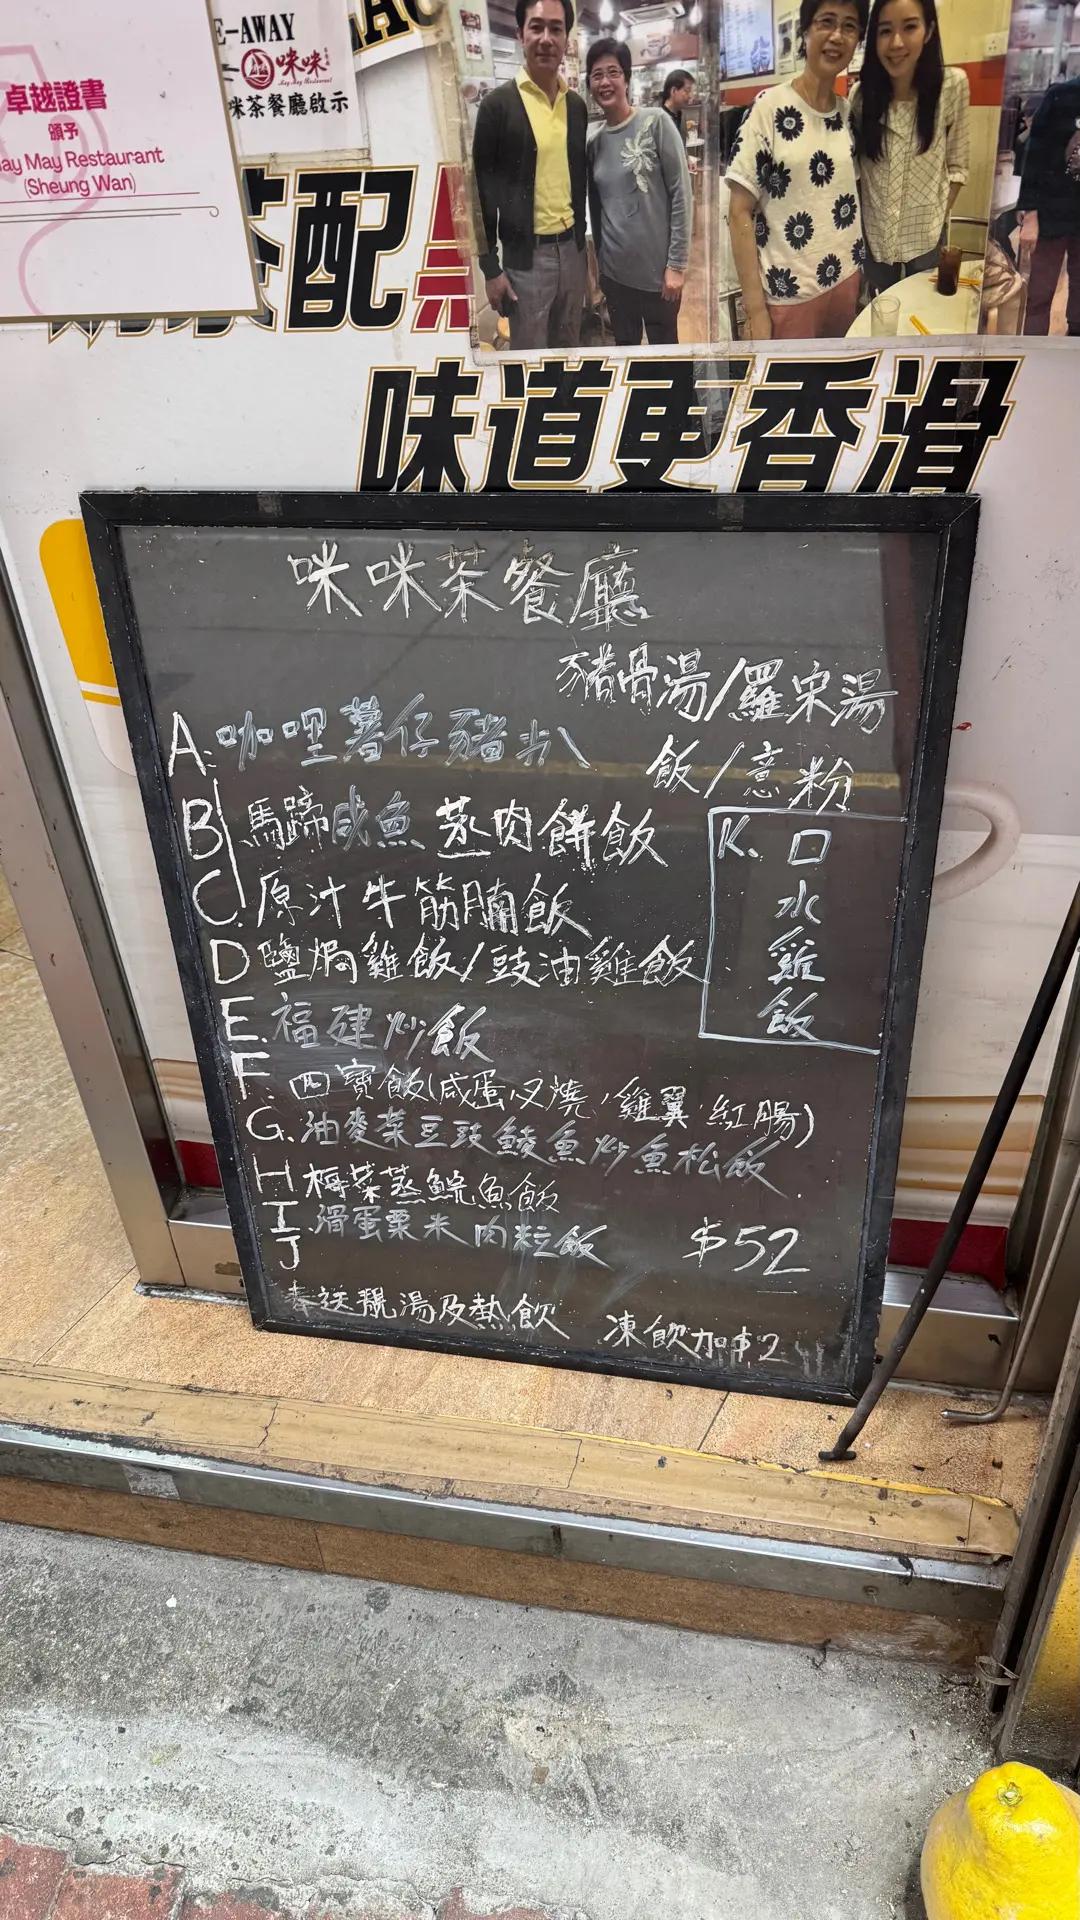 卓越證書
頒予
May Restaurant
(Sheung Wan)
E-AWAY
咪咪
May May Restaurant
咪茶餐廳啟示
茶配
味道更香滑
咪咪茶餐廳
豬骨湯/羅宋湯
A. 咖哩薯仔豬扒 飯/意粉
B 馬蹄咸魚蒸肉餅飯
C. 原汁牛筋腩飯
D 鹽焗雞飯/豉油雞飯
E. 福建炒飯
F. 四寶飯(咸蛋,叉燒,雞翼,紅腸)
G. 油麥菜豆豉鯪魚炒魚松飯
H 梅菜蒸鯇魚飯
I. 滑蛋粟米肉粒飯
J
K. 口水雞飯
$52
奉送靚湯及熱飲 凍飲加$2